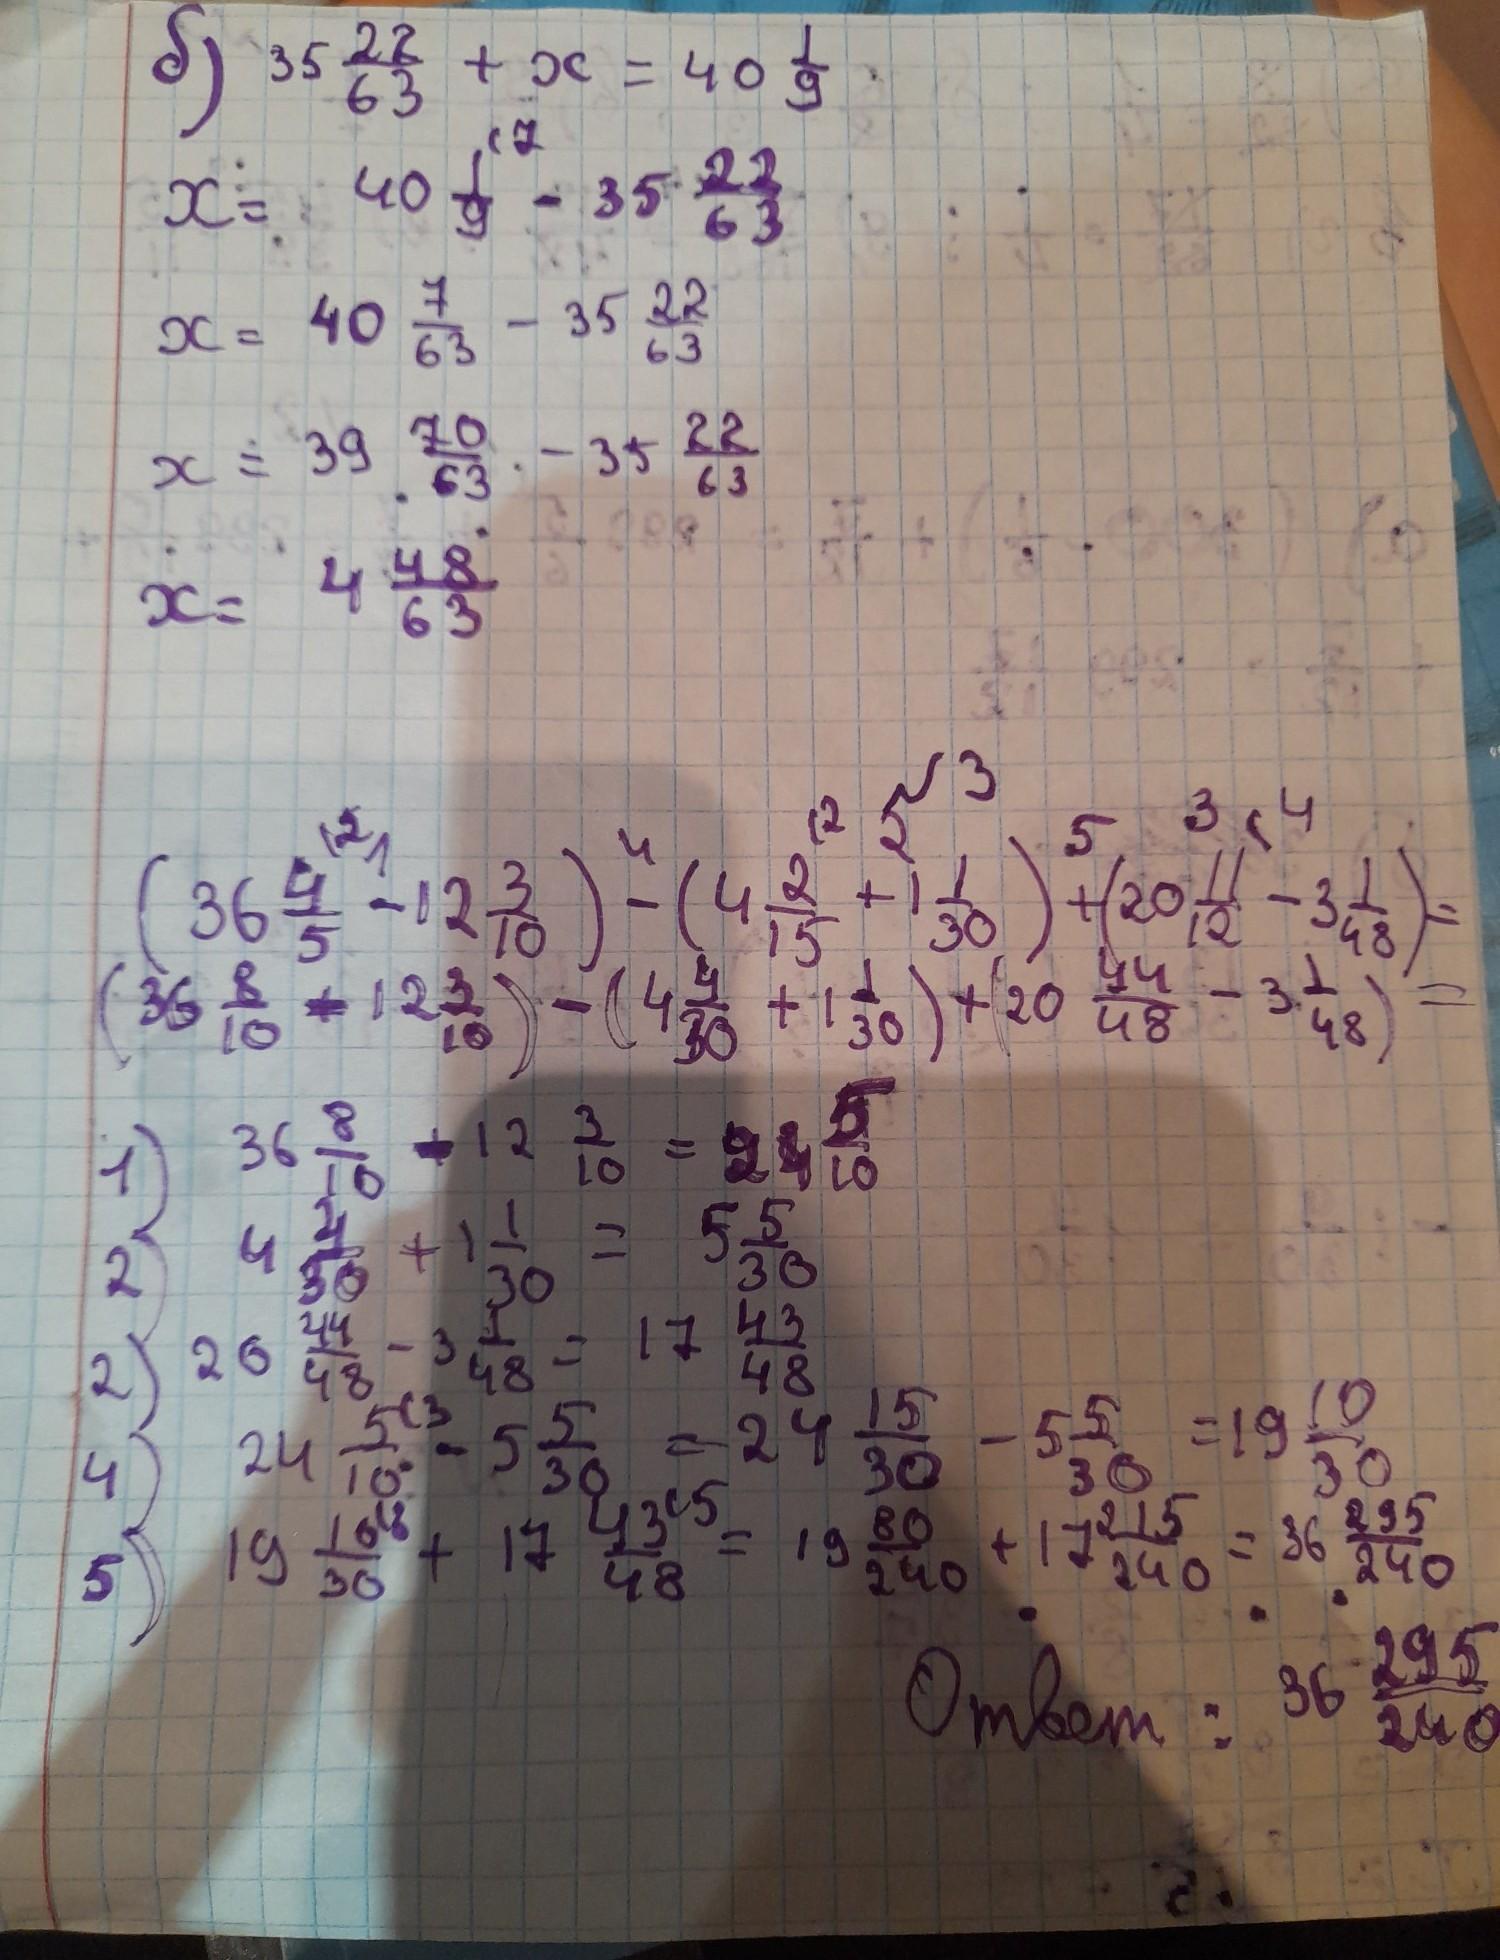 б) 35 22/63 + x = 40 1/9
x = 40 1/9 (7 - 35 22/63
x = 40 7/63 - 35 22/63
x = 39 70/63 - 35 22/63
x = 4 48/63
1 2 3 4 5
(36 4/5 (2 - 12 3/10) - (4 2/15 (2 + 1 1/30) + (20 11/12 (4 - 3 1/48) =
(36 8/10 - 12 3/10) - (4 4/30 + 1 1/30) + (20 44/48 - 3 1/48) =
1) 36 8/10 - 12 3/10 = 24 5/10
2) 4 4/30 + 1 1/30 = 5 5/30
2) 20 44/48 - 3 1/48 = 17 43/48
4) 24 5/10 (3 - 5 5/30 = 24 15/30 - 5 5/30 = 19 10/30
5) 19 10/30 (8 + 17 43/48 (5 = 19 80/240 + 17 215/240 = 36 295/240
Ответ: 36 295/240